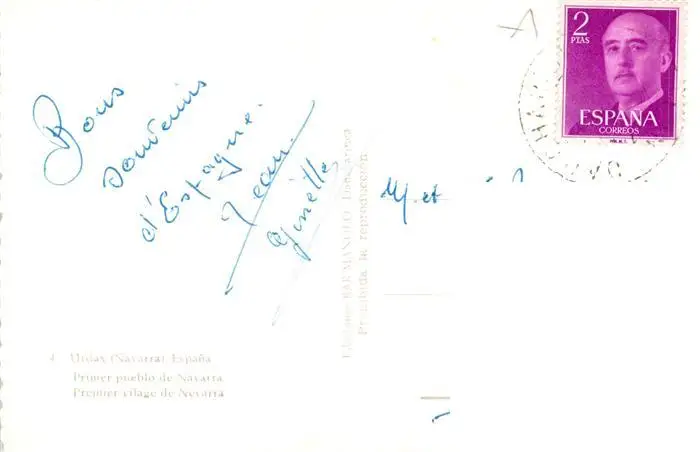 Bons
souvenirs
d'Espagne.
Jean
Ginette
M et
2
PTAS
ESPAÑA
CORREOS
Ediciones BAR MANOLO
Prohibida la reproducción
4. Urdax (Navarra) España
Primer pueblo de Navarra
Premier vilage de Nevarra